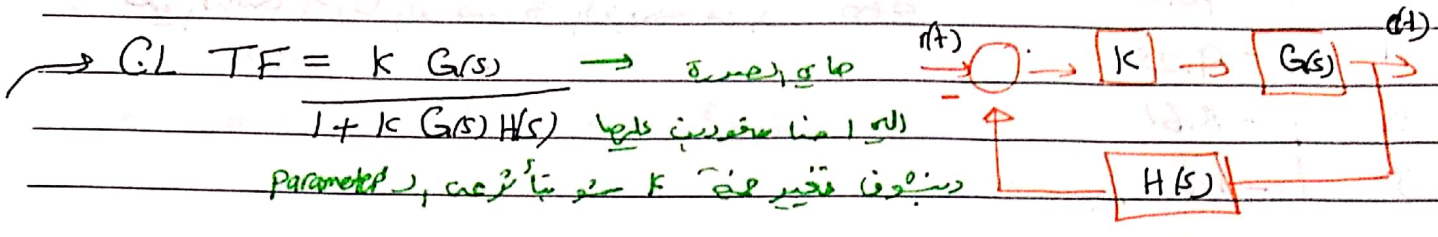 → CL TF = K G(s) → هاي الصورة
1 + K G(s) H(s) اللي احنا متعودين عليها
وبنشوف تغيير قيمة K شو بتأثر عال parameter
r(t) - K G(s) c(t)
H(s)